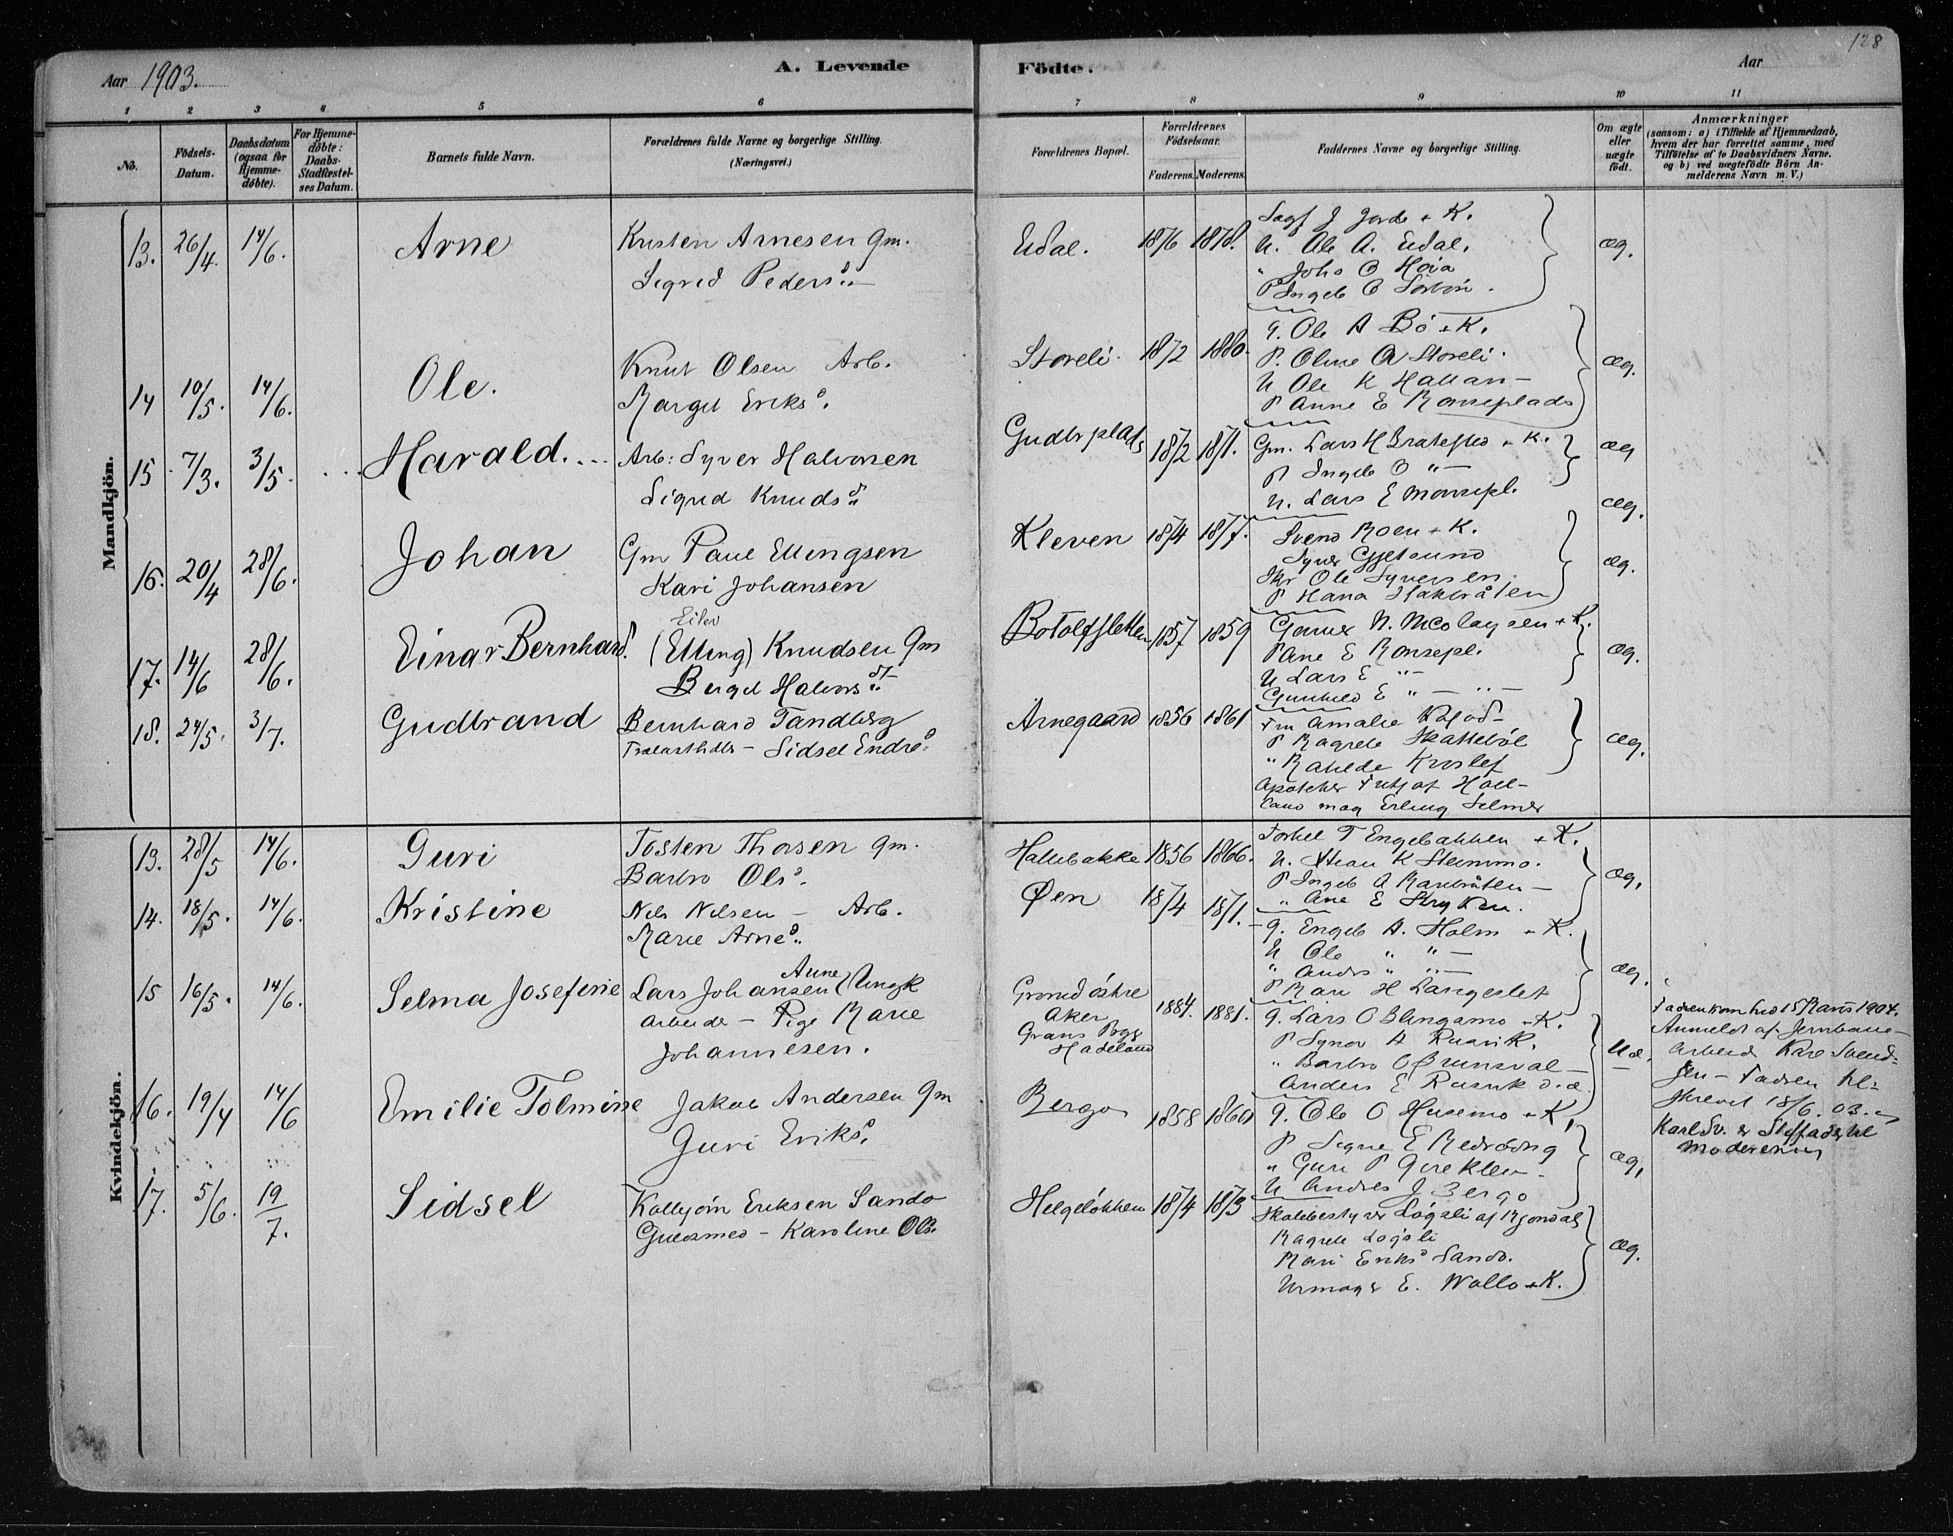 128
Aar 1903.
A. Levende
Födte.
Aar
1 2 3 4 5 6 7 8 9 10 11
No.
Födsels-Datum.
Daabsdatum (ogsaa for Hjemmedöbte).
For Hjemmedöbte: Daabs-Stadfæstelses Datum.
Barnets fulde Navn.
Forældrenes fulde Navne og borgerlige Stilling. (Næringsvei.)
Forældrenes Bopæl.
Forældrenes Födselsaar.
Faderens. Moderens.
Faddernes Navne og borgerlige Stilling.
Om ægte eller uægte födt.
Anmærkninger
(saasom: a) i Tilfælde af Hjemmedaab, hvem der har forrettet samme, med Tilföielse af to Daabsvidners Navne. og b) ved uægtefödte Börn Anmelderens Navn m. V.)
Mandkjön.
13. 26/4. 14/6. Arne
Kristen Arnesen Gm.
Sigrid Pedersd.
Eidal. 1876 1878.
J Jorde + K.
U. Ole A. Eidal.
" Johs O Høia
P Ingeb O
æg.
14 10/5. 14/6. Ole.
Knut Olsen Arb.
Margit Eriksd.
Storeli. 1872 1880.
G. Ole A Bö + K.
P. Oline O Storeli.
U Ole K Hallan
P Anne E Monseplads
æg.
15 7/3. 3/5. Harald.
Arb: Syver Halvorsen
Sigrid Knudsd
Gudbrplads 1872 1871.
Gm. Lars H Bratested + K.
P Ingeb O " -
U. Lars E Monsepl.
æg
æg.
16. 20/4 28/6. Johan
Gm Paul Ellingsen
Kari Johansen
Kleven 1874 1877.
Svend Moen + K.
Syver Gjetsund
Skr Ole Syversen.
P Hana
æg.
17. 14/6 28/6. Einar Bernhard.
Eilev
(Elling) Knudsen Gm
Bergit Halvorsd
Botolfsletten 1857 1859
N. Nicolaysen + K.
P Ane E Monsepl.
U Lars E " -
Gunhild E " -
æg.
18. 24/5. 3/7. Gudbrand
Bernhard Tandberg
- Sidsel Endresd.
Arnegaard 1856 1861
Fru Amalie
P Ragnete Skattebøl
" Ranede
Apotheker Fritjof
land mag Erling Selmer
æg.
Kvindekjön.
13. 28/5 14/6. Guri
Tosten Thosen Gm.
Barbro Olsd.
Hallebakke 1856 1866.
Torkel T Engebakken + K.
U. K
P Ingeb A
" Ane E Stryken.
æg.
14. 18/5. 14/6. Kristine
Nels Nelsen - Arb.
Marie Arnesd.
Øen 1874 1871.
G. Engeb A. Holm + K.
U Ole " " -
" Anders " " -
P Mari H Langeslet
æg.
15 16/5. 14/6. Selma Josefine
Anne
Lars Johansen Ungk
Arbeider - Pige Marie
Johannesen.
Grorud østre
Aker
Grans Pgj
Hadeland
1884. 1881.
G. Lars O Blingsmo + K.
P Synov A Rusvik.
" Barbro O Grunsval -
Anders E Rusvik
U.æ.
Anmeldt af Jernbane-
arbeid Karl Svend-
sen - Fadren til-
skrevet 18/6. 03.
Karl Sv. er Stiffader til
Moderen
16. 19/4 14/6 Emilie Tolmine
Jakob Andersen Gm
Guri Eriksd.
Bergo 1858 1860
G. Ole O Husemo + K.
P Signe E
" Guri P
U Anders J Bergo
æg.
17. 5/6. 19/7. Sidsel
Kolbjørn Eriksen Sando
Guldsmed - Karoline Olsd.
Helgeløkken 1874 1873
Skolebestyrer Løgsli
Ragnete Løgsli
Mari Eriksd Sando.
Urmager E. Wollo + K.
æg.